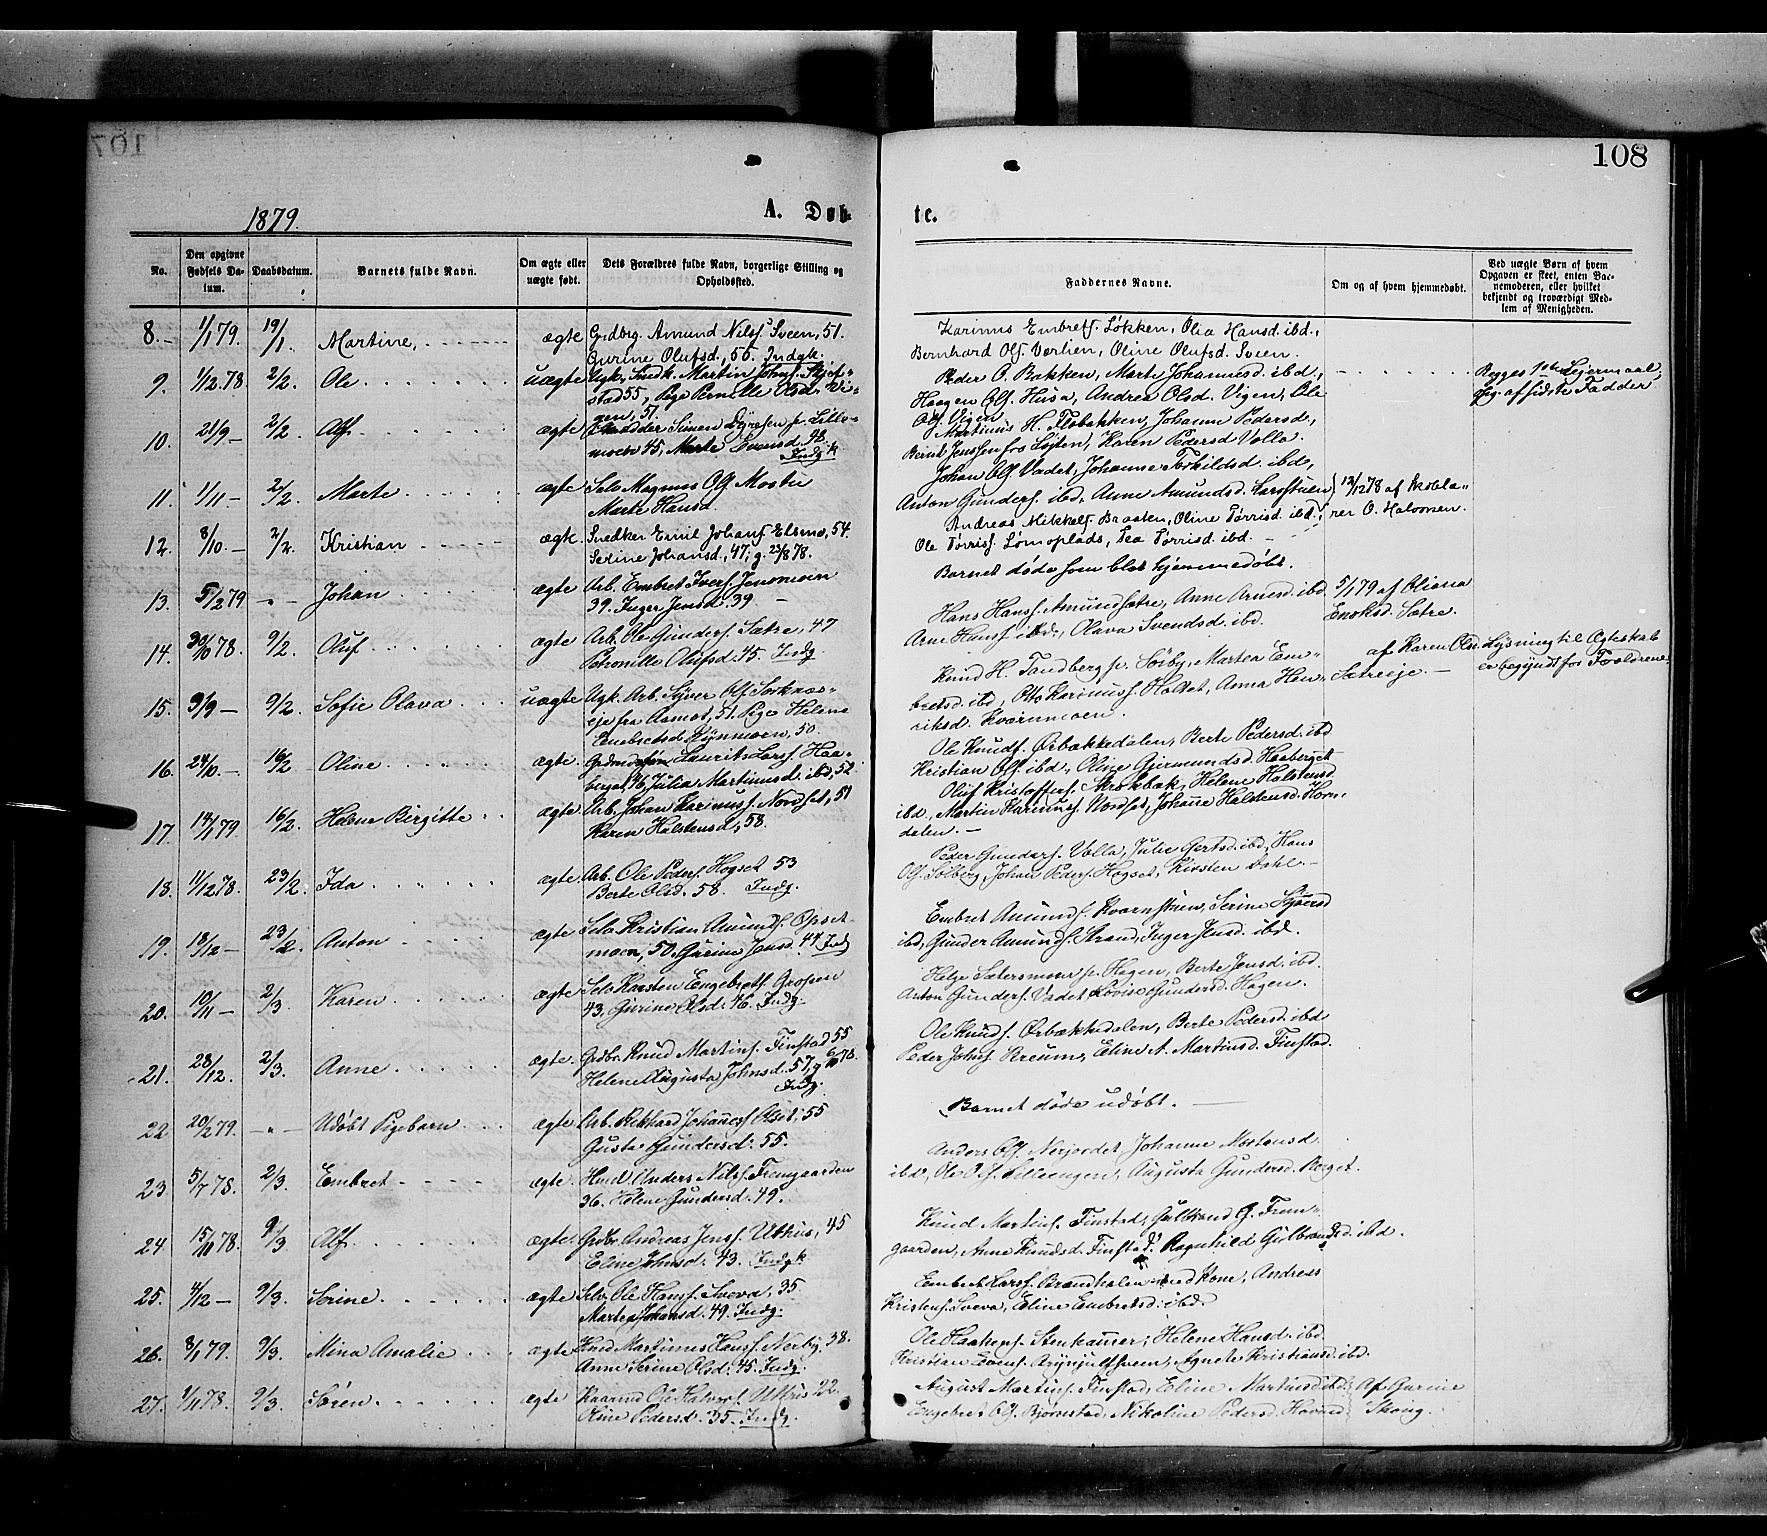 108
1879.
A. Døb-
te.
No.
Den opgivne Fødsels Da-
tum.
Daabsdatum.
Barnets fulde Navn.
Om ægte eller
uægte født.
Dets Forældres fulde Navn, borgerlige Stilling og
Opholdssted.
Faddernes Navne.
Om og af hvem hjemmedøbt.
Ved uægte Børn af hvem
Opgaven er skeet, enten Bar-
nemoderen, eller hvilket
bekjendt og troværdigt Med-
lem af Menigheden.
8. 1/1 79. 19/1. Martine, ægte Grdbrg. Amund Nilss. Sveen, 51.
Gurine Olufsd., 56. Indgk.
Karinus Embretss. Løkken, Olia Hansd. ibd.,
Bernhard Ols. Værlien, Oline Olufsd. Sveen.
9. 1/12 78. 2/2. Ole uægte Ugk. Snedk. Martin Johnss. Skjef-
stad 55, Pige Pernille Olsd. Vi-
gen, 57.
Peder O. Bakken, Marte Johannesd. ibd.,
Haagen Ols. Husa, Andrea Olsd. Vigen, Ole
Ols. Vigen.
Begges 1ste Leiermaal,
af sidste Fadder
10. 21/9 — 2/2. Alf ægte Simen Dyresen p. Lille-
moen 45, Marte Evensd. 42.
Indgk
Martinus H. Flobakken, Johanne Pedersd.,
Bernt Jenssen fra Løiten, Karen Pedersd. Volla.
11. 1/11 — 2/2. Marte ægte Selv. Magnus Ols. Mostu
Marte Hansd.
Johan Ols. Vadet, Johanne Torkildsd. ibd.,
Anton Gunders. ibd., Anne Amundsd.
12/12 78 af Skolelæ-
rer O. Halvorsen.
12. 8/10. — 2/2. Kristian ægte Snedker Emil Johans. Elsmo, 54.
Serine Johansd., 47; g. 23/8 78.
Andreas Mikkels. Braaten, Oline Tørrisd. ibd.,
Ole Tørriss. Lømoplads, Lea Tørrisd. ibd.
13. 5/2 79 „ — Johan ægte Arb. Embret Ivers. Jenomoen
39. Inger Jensd. 39 —
Barnet døde som blot hjemmedøbt.
14. 30/10 78. 9/2. Oluf ægte Arb. Ole Gunders. Sætre, 47
Petronille Olufsd. 45. Indg
Hans Hanss. Amundsætre, Anne Arnesd. ibd.
Arne Hanss. ibd., Olava Svendsd. ibd.
5/1 79 af Oliana
Enoksd. Sætre.
15. 9/9 — 9/2. Sofie Olava uægte Ugk. Arb. Syver Ols. Sorknæs-
eje fra Aamot, 51. Pige Helene
Embretsd. Kynnmoen, 50
Knud H. Tandberg p. Sørby, Martea Em-
bretsd. ibd., Otto Karinuss. Holtet, Anna Hen-
riksd. Kværnmoen.
af Karen Olsd.
Sætreeje. —
Lysning til Ægteskab
er begyndt for Forældrene.
16. 24/10. — 16/2 Oline ægte Laurits Larss. Haa-
berget, 46, Julia Martinusd. ibd., 52.
Ole Knuds. Ørbækkedalen, Berte Pedersd. ibd
Kristian Ols. ibd., Oline Gjermundsd. Haaberget
17. 14/1 79 16/2. Helene Birgitte ægte Arb. Johan Karinuss. Nordset, 51
Karen Halstensd., 58.
Oluf Kristoffers. Skrokbæk, Helene Halstensd.
ibd., Martin Karinuss. Nordset, Johanne Halstensd. Horn-
dalen. —
18. 11/12 78. 23/2. Ida ægte Arb. Ole Peders. Hogset 53
Berte Olsd. 58. Indg.
Peder Gunders. Volla, Julie Gertsd. ibd., Hans
Ols. Solberg, Johan Peders. Hogset, Kirsten Dahl. —
19. 18/12 — 23/2. Anton ægte Selv. Kristian Amunds. Opset-
moen, 50. Gurine Jensd. 44 Indg
Embret Amunds. Kvernstuen, Serine Sjøersd
ibd., Gunder Amunds. Strand, Inger Jensd. ibd.
20. 10/11 — 2/3. Karen ægte Selv. Karsten Engebrets. Gropen
43, Gurine Olsd. 46. Indg.
Helge Sætersmoen p. Hagen, Berte Jensd. ibd.
Anton Gunders. Vadet, Lovise Gundersd. Hagen.
21. 28/12. 2/3. Anne ægte Grdbr. Knud Martins. Finstad 55
Helene Augusta Johnsd. 57, g 6/10 78.
Indg.
Ole Knuds. Ørbækkedalen, Berte Pedersd. ibd
Peder Johns. Kreum, Eline A. Martinsd. Finstad.
22 20/2 79. — „ — Udøbt Pigebarn ægte Arb. Rikhard Johaness. Olset, 55
Gusta Gundersd. 55.
Barnet døde udøbt. —
23 5/7 78. 2/3. Embret ægte. Husd. Anders Nilss. Fremgaarden
36. Helene Gundersd. 49.
Anders Ols. Nerjordet, Johanne Mortensd.
ibd., Ole O.s. Lilleengen, Augusta Gundersd. Berget.
24. 15/10 78. 9/3 Alf. ægte Grdbr. Andreas Jenss. Uthus, 45
Eline Johnsd. 43. Indgk
Knud Martins. Finstad, Gulbrand G. Frem-
gaarden, Anne Knudsd. Finstad. Ragnhild Gulbrandsd. ibd.
25. 4/12 — 9/3. Serine ægte Selv. Ole Hanss. Sveva, 35
Martea Johansd. 49. Indg.
Embret Larss. Brændhalen med Kone, Andreas
Kristens. Sveva, Eline Embretsd. ibd.
26. 8/1 79. 9/3. Mina Amalie ægte Husd. Martinus Hanss. Nerby, 38.
Anne Serine Olsd. 45. Indg.
Ole Haakens. Stenkamer, Helene Hansd. ibd
Kristian Evens. Arynjulfsveen, Agnete Kristiansd. ibd.
27. 1/11 78. 9/3. Søren ægte Kaarmd. Ole Halvors. Uthus 22.
Oline Pedersd. 35. Indg.
August Martins. Finstad, Eline Martinsd ibd.
Engebret Ols. Bjørnstad, Nikoline Pedersd. Hovind.
Af Gurine
Skoug.